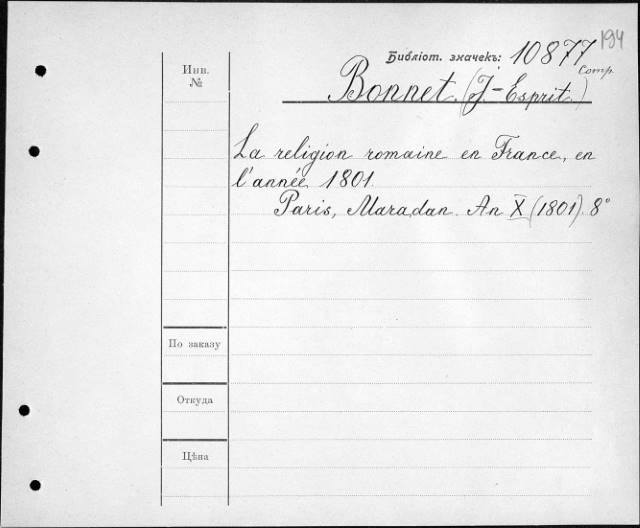 194
Библіот. значекъ: 10877
Comp.
Инв.
№
Bonnet. (J-Esprit)
La religion romaine en France, en
l'année 1801.
Paris, Maradan. An X (1801). 8°
По заказу
Откуда
Цѣна